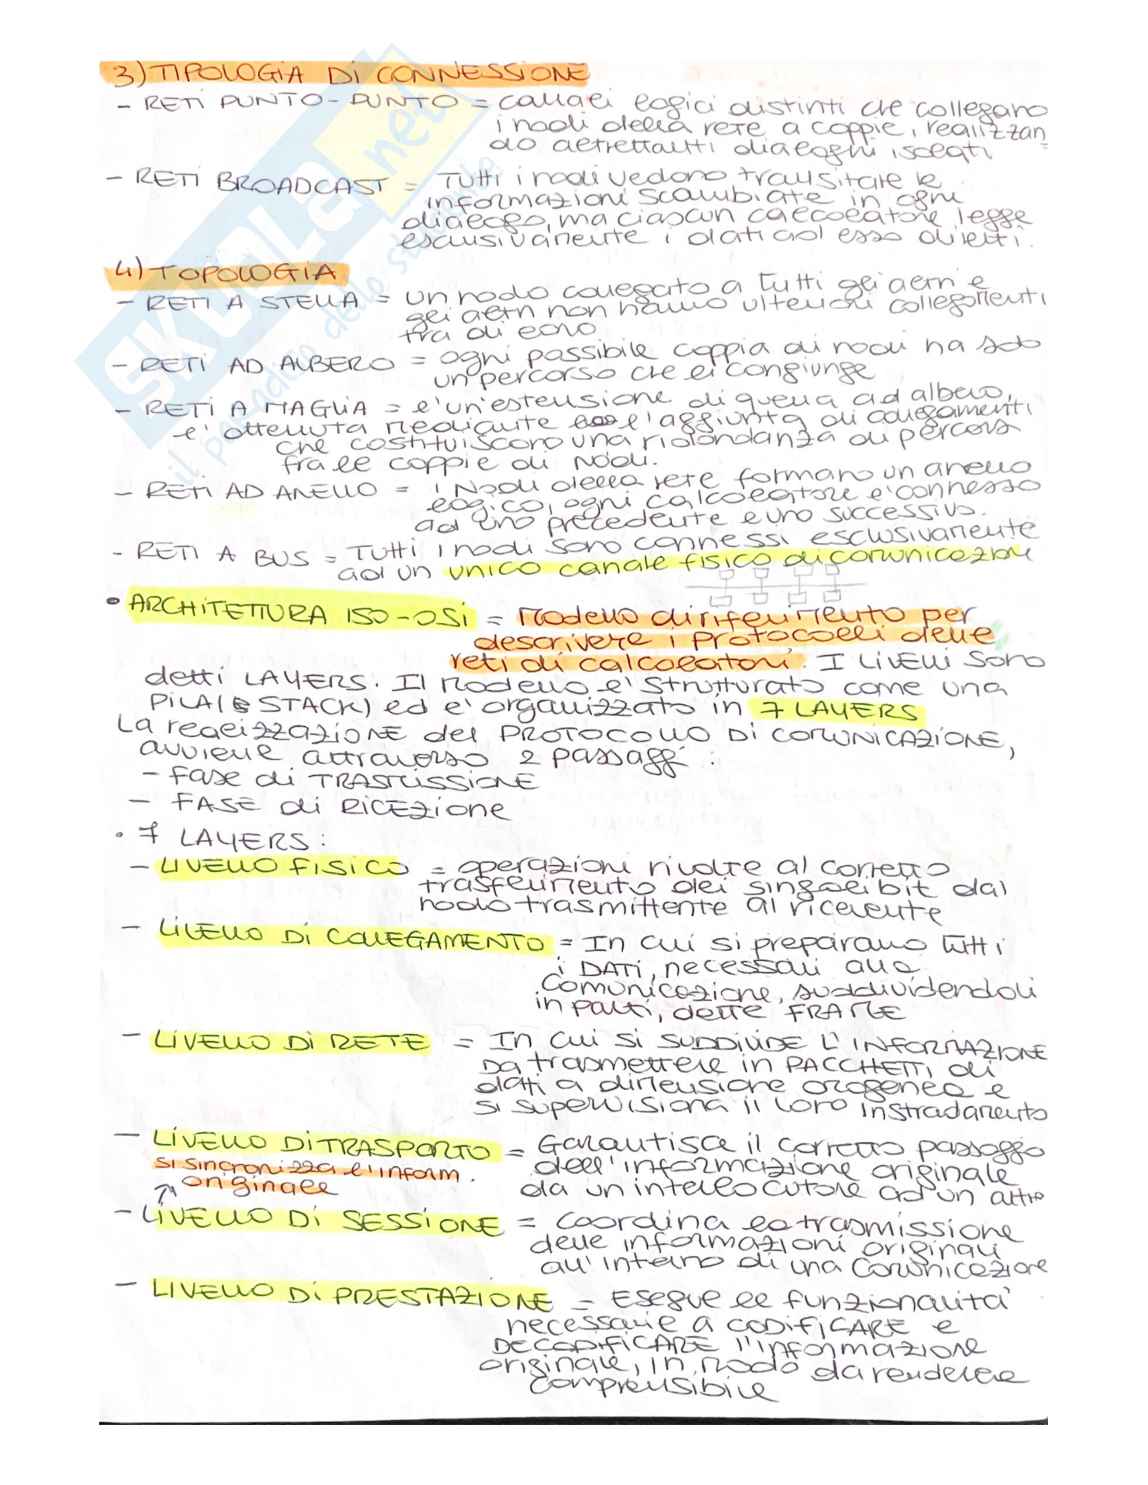 3) TIPOLOGIA DI CONNESSIONE
- RETI PUNTO-PUNTO = canali logici distinti che collegano
i nodi della rete a coppie, realizzan
do altrettanti dialoghi isolati
- RETI BROADCAST = Tutti i nodi vedono transitare le
informazioni scambiate in ogni
dialogo, ma ciascun calcolatore legge
esclusivamente i dati ad esso diretti.
4) TOPOLOGIA
- RETI A STELLA = un nodo collegato a tutti gli altri e
gli altri non hanno ulteriori collegamenti
tra di loro
- RETI AD ALBERO = ogni possibile coppia di nodi ha solo
un percorso che li congiunge
- RETI A MAGLIA = e' un'estensione di quella ad albero,
e' ottenuta mediante l'aggiunta di collegamenti
che costituiscono una ridondanza di percorsi
fra le coppie di nodi.
- RETI AD ANELLO = i Nodi della rete formano un anello
logico, ogni calcolatore e' connesso
ad uno precedente e uno successivo.
- RETI A BUS = Tutti i nodi sono connessi esclusivamente
ad un unico canale fisico di comunicazione
• ARCHITETTURA ISO-OSI = Modello di riferimento per
descrivere i protocolli delle
reti di calcolatori. I Livelli sono
detti LAYERS. Il modello e' strutturato come una
PILA (o STACK) ed e' organizzato in 7 LAYERS
La realizzazione del PROTOCOLLO DI COMUNICAZIONE,
avviene attraverso 2 passaggi:
- Fase di TRASMISSIONE
- FASE di RICEZIONE
• 7 LAYERS:
- LIVELLO FISICO = operazioni rivolte al corretto
trasferimento dei singoli bit dal
nodo trasmittente al ricevente
- LIVELLO DI COLLEGAMENTO = In cui si preparano tutti
i DATI, necessari alla
comunicazione, suddividendoli
in parti, dette FRAME
- LIVELLO DI RETE = In cui si SUDDIVIDE L'INFORMAZIONE
DA trasmettere in PACCHETTI di
dati a dimensione omogenea e
si supervisiona il loro instradamento
- LIVELLO DI TRASPORTO = Garantisce il corretto passaggio
si sincronizza l'inform. dell'informazione originale
originale da un interlocutore ad un altro
- LIVELLO DI SESSIONE = Coordina la trasmissione
delle informazioni originali
all'interno di una comunicazione
- LIVELLO DI PRESTAZIONE = Esegue le funzionalità
necessarie a CODIFICARE e
DECODIFICARE l'informazione
originale, in modo da renderla
comprensibile
SKUOLA.net
il paradiso dello studente